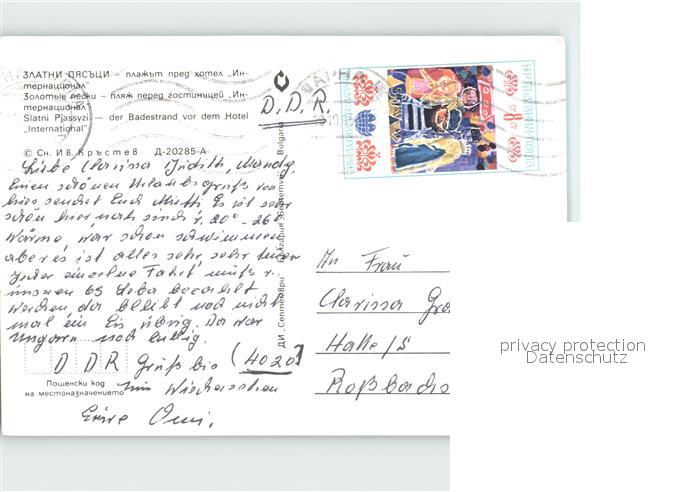 ЗЛАТНИ ПЯСЪЦИ – плажът пред хотел „Ин-
тернационал"
Золотые пески – пляж перед гостиницей „Ин-
тернационал"
Slatni Pjassyzi — der Badestrand vor dem Hotel
„International"
© Сн. Ив. Кръстев Д-20285-А
D.D.R.
Liebe Clarissa Judith, Mandy
Einen schönen Urlaubsgruß von
hier sendet Euch Mutti Es ist sehr
schön hier 20° - 26°
Wärme, war schon schwimmen
aber es ist alles sehr, sehr teuer
jede einzelne Fahrt muß v.
unseren 65 Leba bezahlt
werden da bleibt noch nicht
mal ein Eis übrig. Da war
Ungarn noch billig.
DDR Gruß bis (4020)
zum Wiedersehen
Eure Omi.
Пощенски код
на местоназначението
ДИ „Септември"
България
Bulgaria
НР БЪЛГАРИЯ
8
An Frau
Clarissa Gra
Halle/S
Roßbachs
privacy protection
Datenschutz